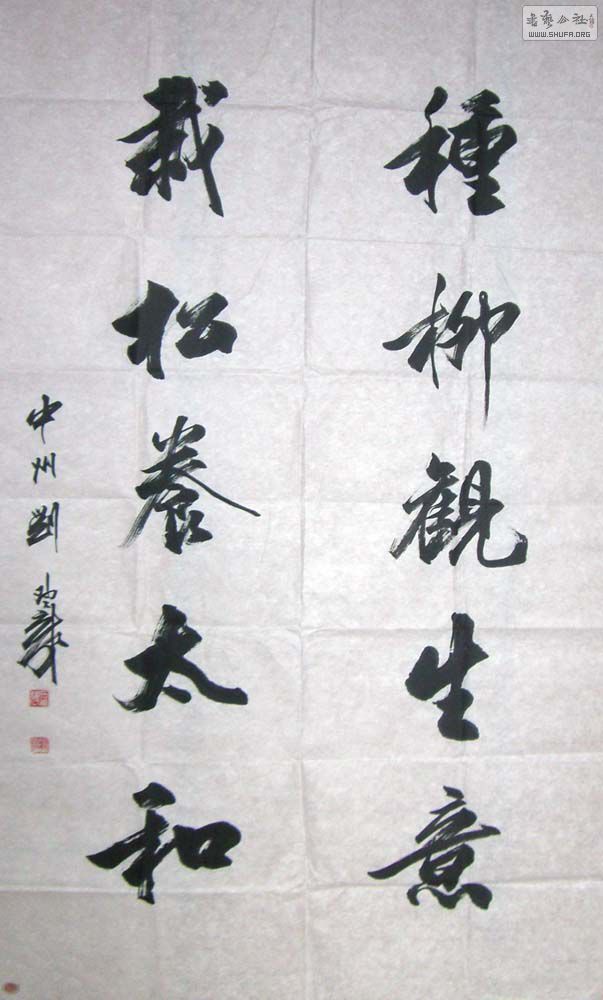 種柳観生意
栽松養太和
中州劉
書藝公社
WWW.SHUFA.ORG